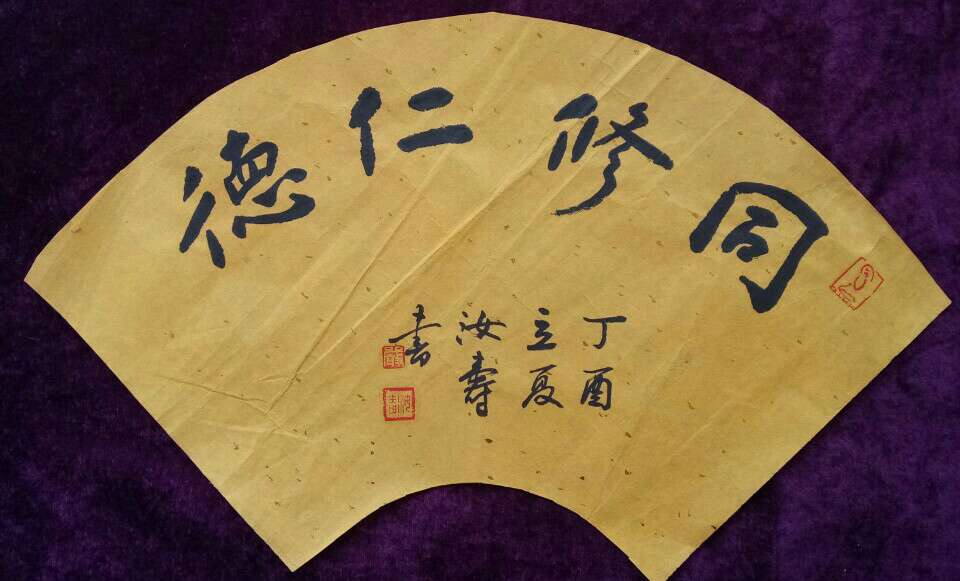 同修仁德
丁酉
立夏
汝寿
书